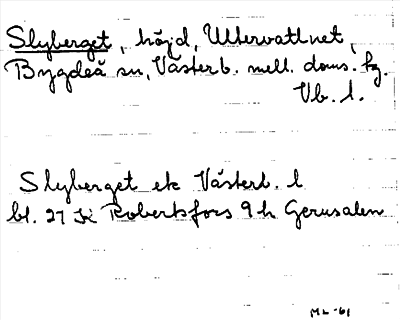 Slyberget, höjd, Uttervattnet,
Bygdeå sn, Västerb. mell. doms. fg.
Vb. l.
Slyberget ek Västerb. l
bl. 21 K Robertsfors 9 h Gerusalen
ML -61